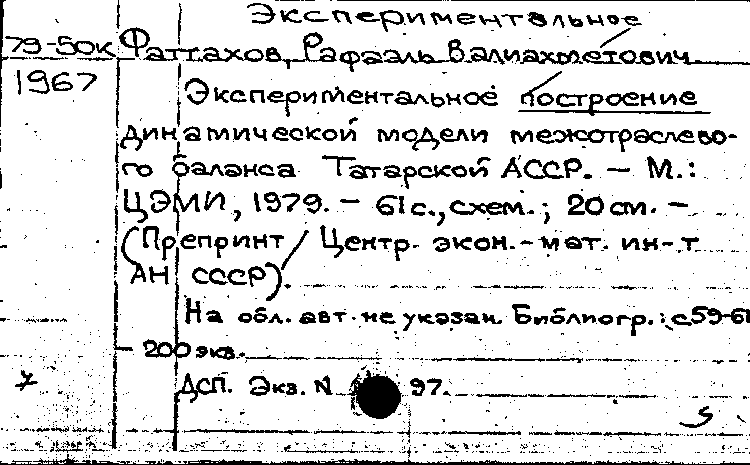 Экспериментальное
79-50к Фаттахов, Рафаэль Валиахметович.
1967
Экспериментальное построение
динамической модели межотраслево-
го баланса Татарской АССР. – М.:
ЦЭМИ, 1979. – 61 с., схем.; 20 см. –
(Препринт / Центр. экон.-мат. ин-т
АН СССР).
На обл. авт. не указан. Библиогр.: с.59-61
– 200 экз.
ДСП. Экз. N 97.